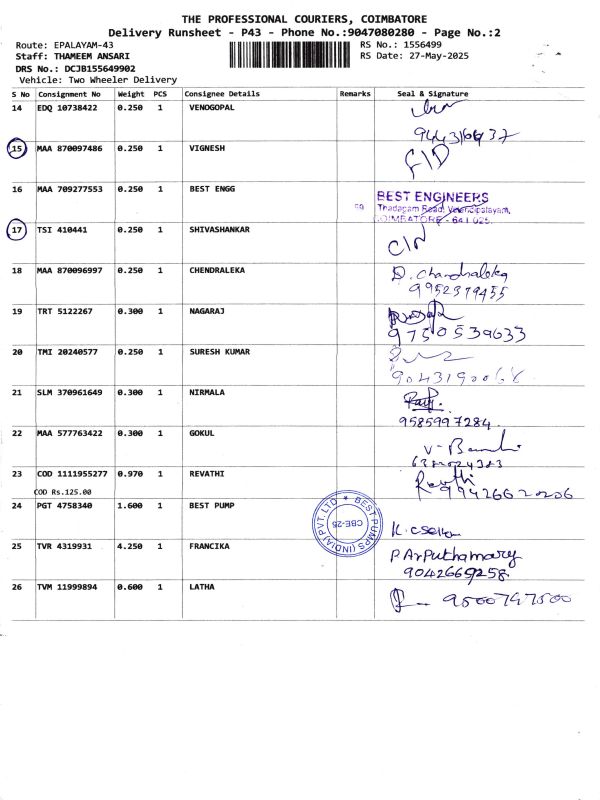 THE PROFESSIONAL COURIERS, COIMBATORE
Delivery Runsheet - P43 - Phone No.:9047080280 - Page No.:2
Route: EPALAYAM-43 RS No.: 1556499
Staff: THAMEEM ANSARI RS Date: 27-May-2025
DRS No.: DCJB155649902
Vehicle: Two Wheeler Delivery
S No Consignment No Weight PCS Consignee Details Remarks Seal & Signature
14 EDQ 10738422 0.250 1 VENOGOPAL
15 MAA 870097486 0.250 1 VIGNESH
16 MAA 709277553 0.250 1 BEST ENGG BEST ENGINEERS
Thadagam Road, Veerapalayam,
COIMBATORE - 641 025.
17 TSI 410441 0.250 1 SHIVASHANKAR
18 MAA 870096997 0.250 1 CHENDRALEKA D. Chandraleka
9952379455
19 TRT 5122267 0.300 1 NAGARAJ
9750539633
20 TMI 20240577 0.250 1 SURESH KUMAR
21 SLM 370961649 0.300 1 NIRMALA
9585997284
22 MAA 577763422 0.300 1 GOKUL
23 COD 1111955277 0.970 1 REVATHI Revathi
99426620206
COD Rs.125.00
24 PGT 4758340 1.600 1 BEST PUMP BEST PUMPS (INDIA) PVT. LTD
CBE-25
25 TVR 4319931 4.250 1 FRANCIKA P Arputhamary
9042669258
26 TVM 11999894 0.600 1 LATHA 9500797500